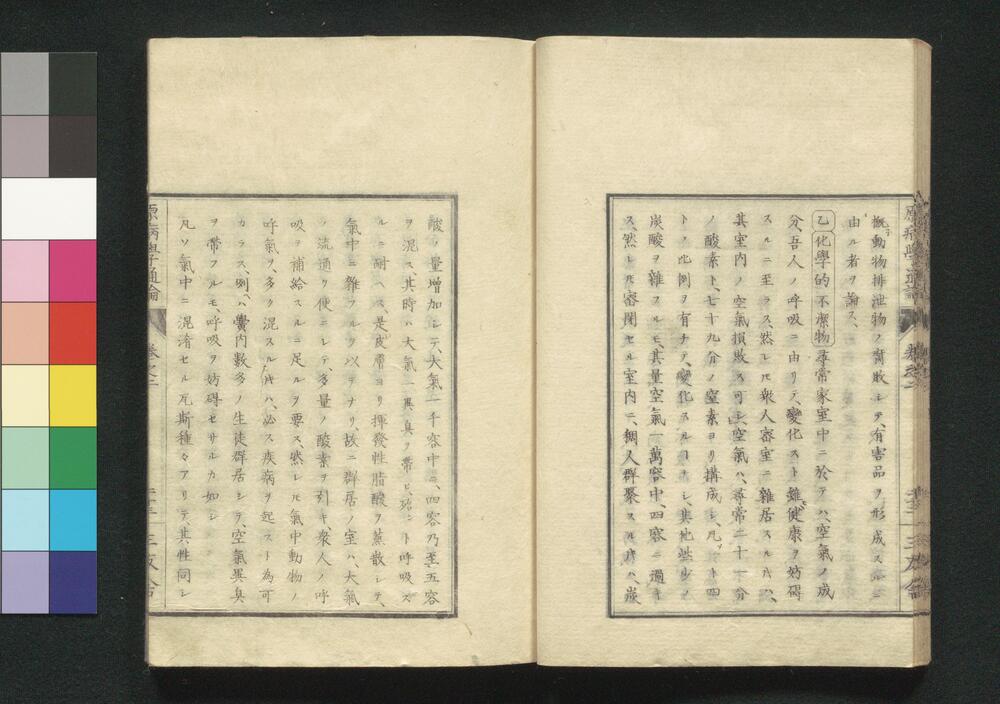 概動物排泄物ノ腐敗シテ、有害品ヲ形成スルニ
由ル者ヲ論ス、
乙化學的不潔物尋常家室中ニ於テハ、空氣ノ成
分、吾人ノ呼吸ニ由リテ、變化スト雖、健康ヲ妨碍
スルニ至ラス、然レ𪜈衆人密室ニ雜居スル片ハ、
其室内ノ空氣損敗ス可シ、空氣ハ、尋常二十一分
ノ酸素ト、七十九分ノ窒素ヨリ構成シ、凡ソ
ト ノ比例ヲ有チテ、變化スル ナシ、其他些少ノ
炭酸ヲ雜フルモ、其量空氣一萬容中、四容ニ過キ
ス、然レ𪜈密閉セル室内ニ、稠人群聚スル片ハ、炭
酸ノ量増加シテ、大氣一千容中ニ、四容乃至五容
ヲ混ス、其時ハ大氣一異臭ヲ帶ヒ、殆ント呼吸ス
ルニ耐ヘス、是皮膚ヨリ揮發性脂酸ヲ蒸散シテ、
氣中ニ雜フルヲ以テナリ、故ニ群居ノ室ハ、大氣
ノ流通ヲ便ニシテ、多量ノ酸素ヲ引キ、衆人ノ呼
吸ヲ補給スルニ足ルヲ要ス、然レ𪜈氣中動物ノ
呼氣ヲ、多ク混スル片ハ、必ス疾病ヲ起スト為可
カラス、例ヘハ黌内數多ノ生徒群居シテ、空氣異臭
ヲ帶フルモ、呼吸ヲ妨碍セサルカ如シ
凡ソ氣中ニ混淆セル瓦斯種々アリテ、其性同シ
原病學通論
卷之二
三友舎